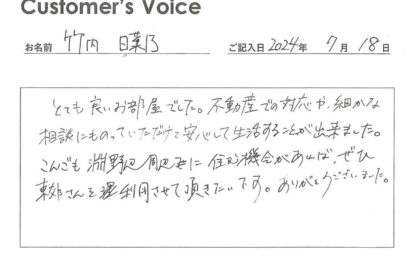 Customer's Voice
お名前 竹内 日菜乃 ご記入日 2024年 7月 18日
とても良いお部屋でした。不動産での対応や、細かな
相談にものっていただけて安心して生活することが出来ました。
こんども 淵野辺 周辺に 住む機会があれば、ぜひ
さんを 利用させて頂きたいです。ありがとうございました。